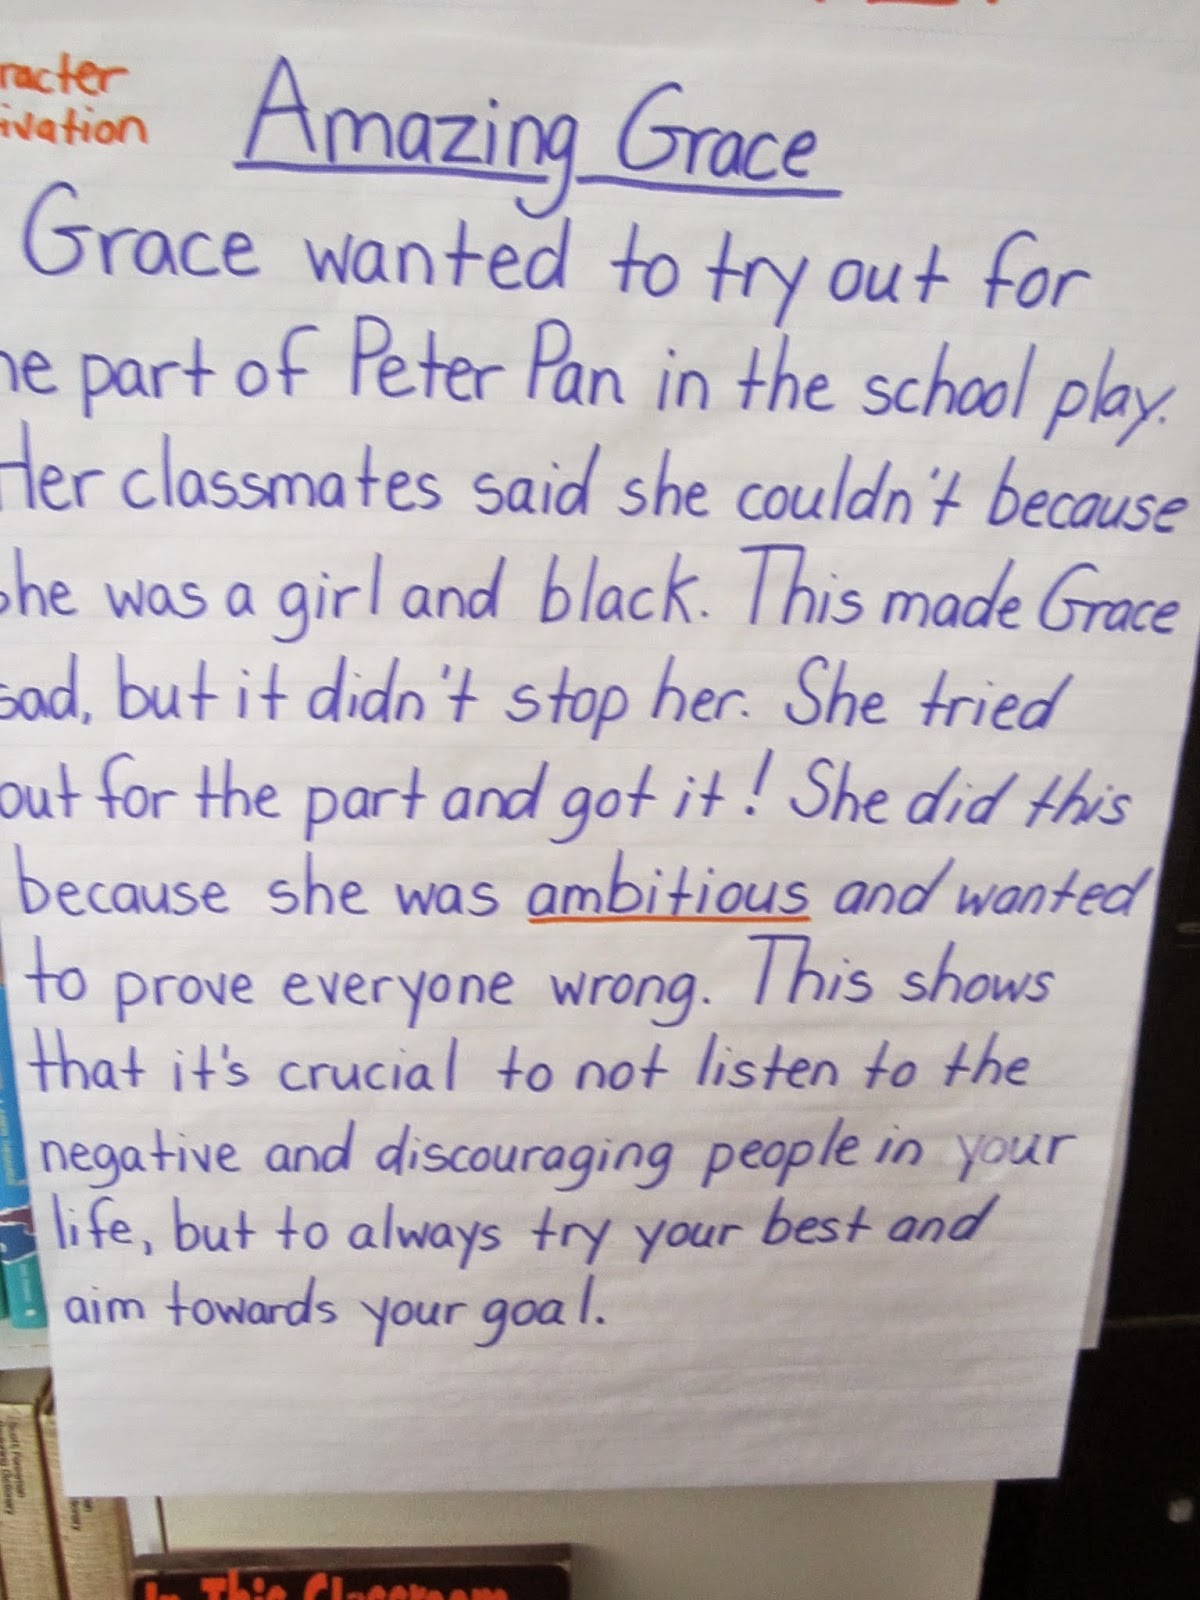 racter
ivation
Amazing Grace
Grace wanted to try out for
he part of Peter Pan in the school play.
Her classmates said she couldn't because
she was a girl and black. This made Grace
sad, but it didn't stop her. She tried
out for the part and got it! She did this
because she was ambitious and wanted
to prove everyone wrong. This shows
that it's crucial to not listen to the
negative and discouraging people in your
life, but to always try your best and
aim towards your goal.
In This Classroom